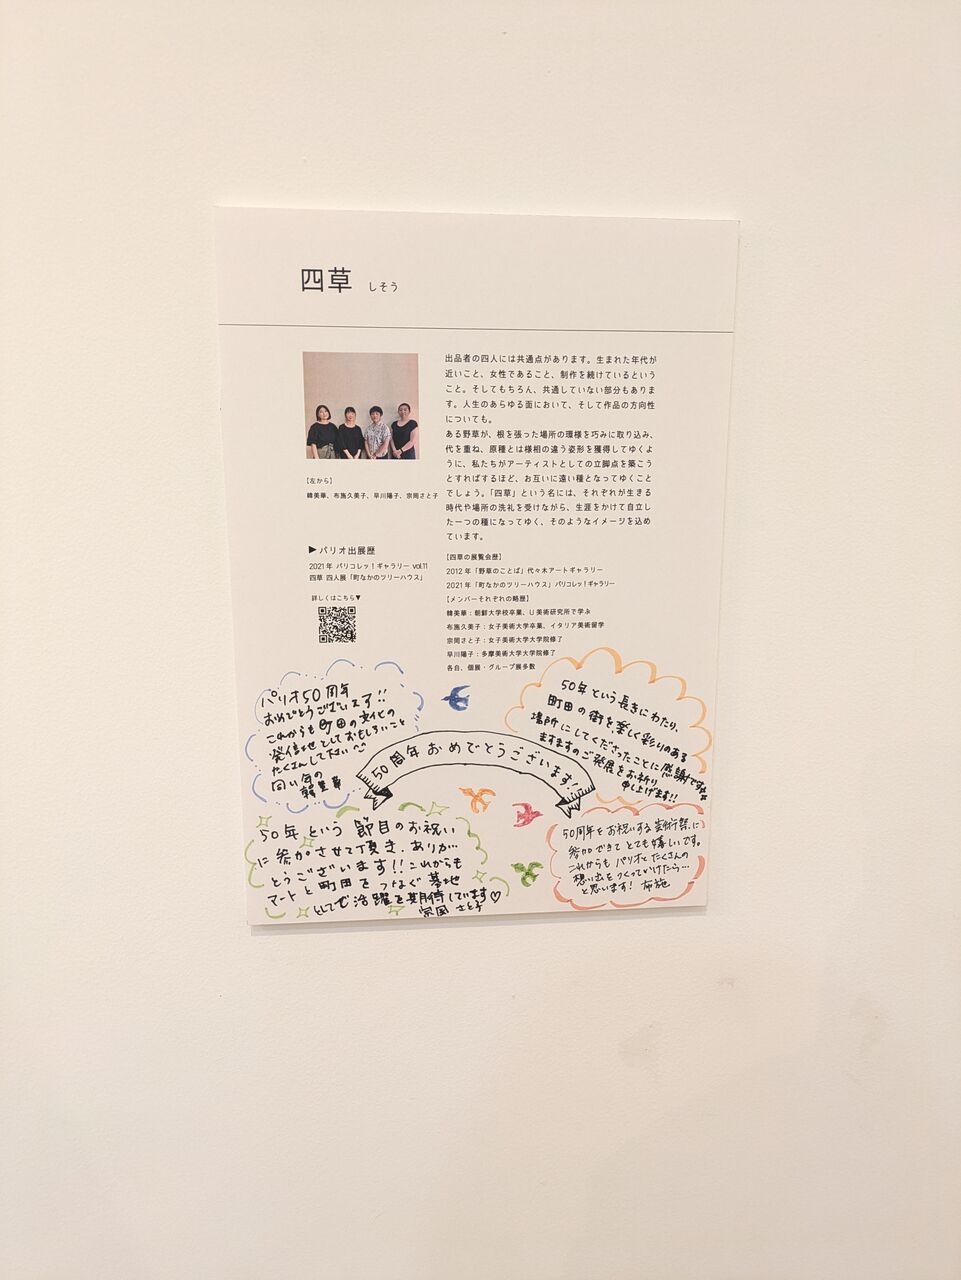 四草 しそう
出品者の四人には共通点があります。生まれた年代が
近いこと、女性であること、制作を続けているという
こと。そしてもちろん、共通していない部分もありま
す。人生のあらゆる面において、そして作品の方向性
についても。
ある野草が、根を張った場所の環様を巧みに取り込み、
代を重ね、原種とは様相の違う姿形を獲得してゆくよ
うに、私たちがアーティストとしての立脚点を築こう
とすればするほど、お互いに遠い種となってゆくこと
でしょう。「四草」という名には、それぞれが生きる
時代や場所の洗礼を受けながら、生涯をかけて自立し
た一つの種になってゆく、そのようなイメージを込め
ています。
【左から】
韓美華、布施久美子、早川陽子、宗岡さと子
▶パリオ出展歴
2021年 パリコレッ！ギャラリー vol.11
四草 四人展「町なかのツリーハウス」
詳しくはこちら▼
【四草の展覧会歴】
2012年「野草のことば」代々木アートギャラリー
2021年「町なかのツリーハウス」パリコレッ！ギャラリー
【メンバーそれぞれの略歴】
韓美華：朝鮮大学校卒業、U美術研究所で学ぶ
布施久美子：女子美術大学卒業、イタリア美術留学
宗岡さと子：女子美術大学大学院修了
早川陽子：多摩美術大学大学院修了
各自、個展・グループ展多数
パリオ50周年
おめでとうございます!!
これからも町田の文化の
発信地としておもしろいこと
たくさんして下さい^^
同い年の
韓美華
50年という長きにわたり、
町田の街を楽しく彩りのある
場所にしてくださったことに感謝です
ますますのご発展をお祈り
申し上げます!!
50周年おめでとうございます!
50年という節目のお祝い
に参加させて頂き、ありが…
とうございます!!これからも
アートと町田をつなぐ基地
としてご活躍を期待しています♡
宗岡さと子
50周年をお祝いする芸術祭に
参加できてとても嬉しいです。
これからもパリオとたくさんの
想い出をつくっていけたら…
と思います! 布施